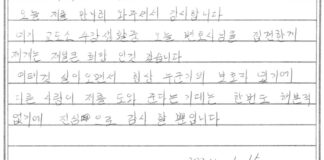 오늘 저를 만나러 와주셔서 감사합니다
여기 교도소 수감생활중 오늘 변호사님을 접견한게
저에게는 제일큰 희망 인것 같습니다
여태껏 살아오면서 항상 누군가의 보호가 없기에
다른 사람이 저를 도와 준다는 기대는 한번도 해보적
없기에 진심으로 감사 할 뿐입니다